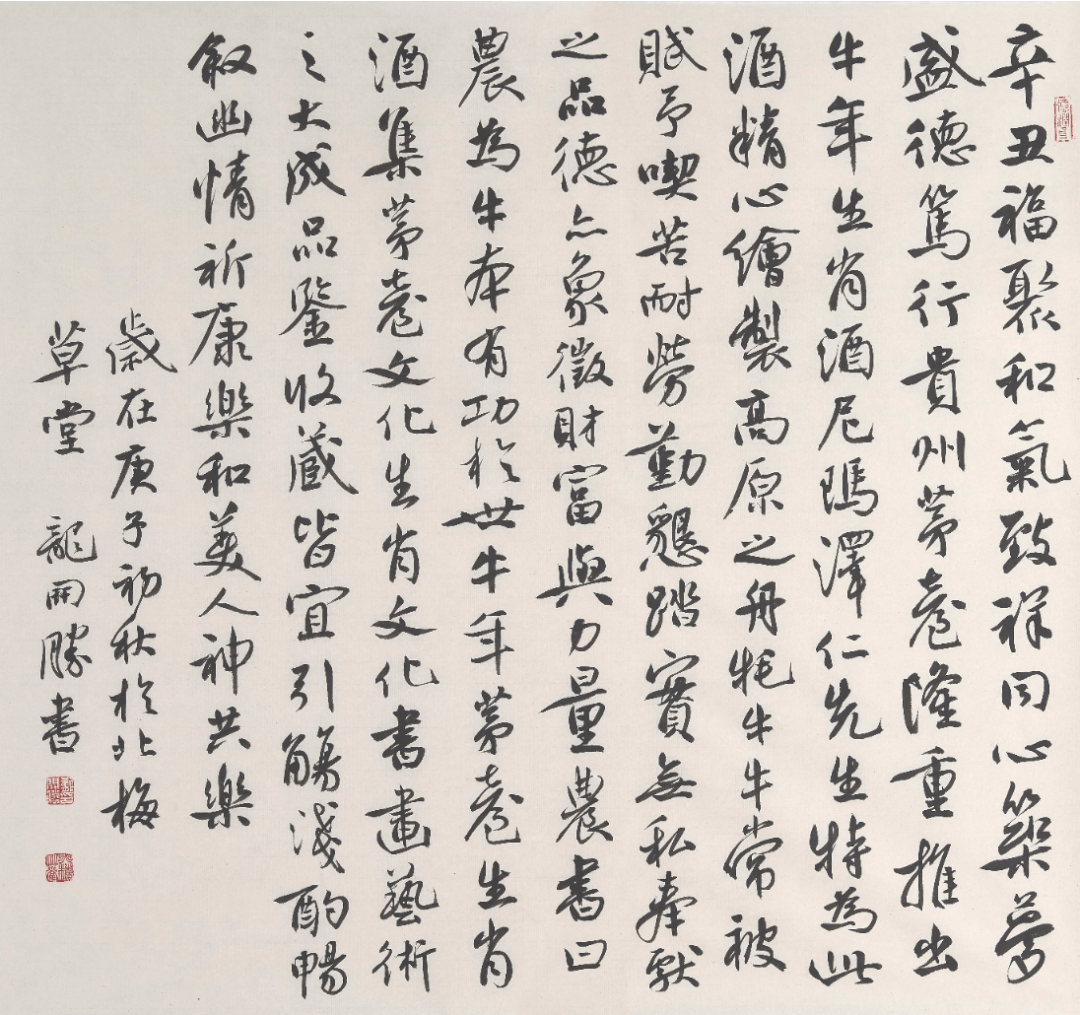 辛丑福聚和氣致祥同心築夢
盛德篤行貴州茅臺隆重推出
牛年生肖酒尼瑪澤仁先生特為此
酒精心繪製高原之舟牦牛牛常被
賦予喫苦耐勞勤懇踏實無私奉獻
之品德亦象徵財富與力量農書曰
農為牛本有功於世牛年茅臺生肖
酒集茅臺文化生肖文化書畫藝術
之大成品鑒收藏皆宜引觴淺酌暢
敘幽情祈康樂和美人神共樂
歲在庚子初秋於北梅
草堂 龍開勝書